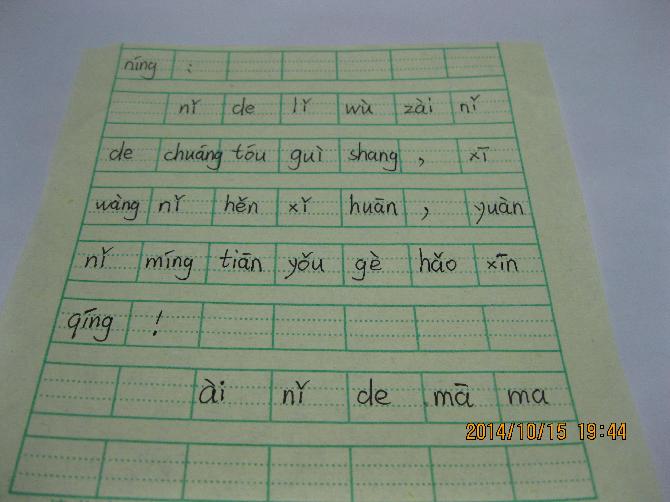 níng :
nǐ de lǐ wù zài nǐ
de chuáng tóu guì shang , xī
wàng nǐ hěn xǐ huān , yuàn
nǐ míng tiān yǒu gè hǎo xīn
qíng !
ài nǐ de mā ma
2014/10/15 19:44